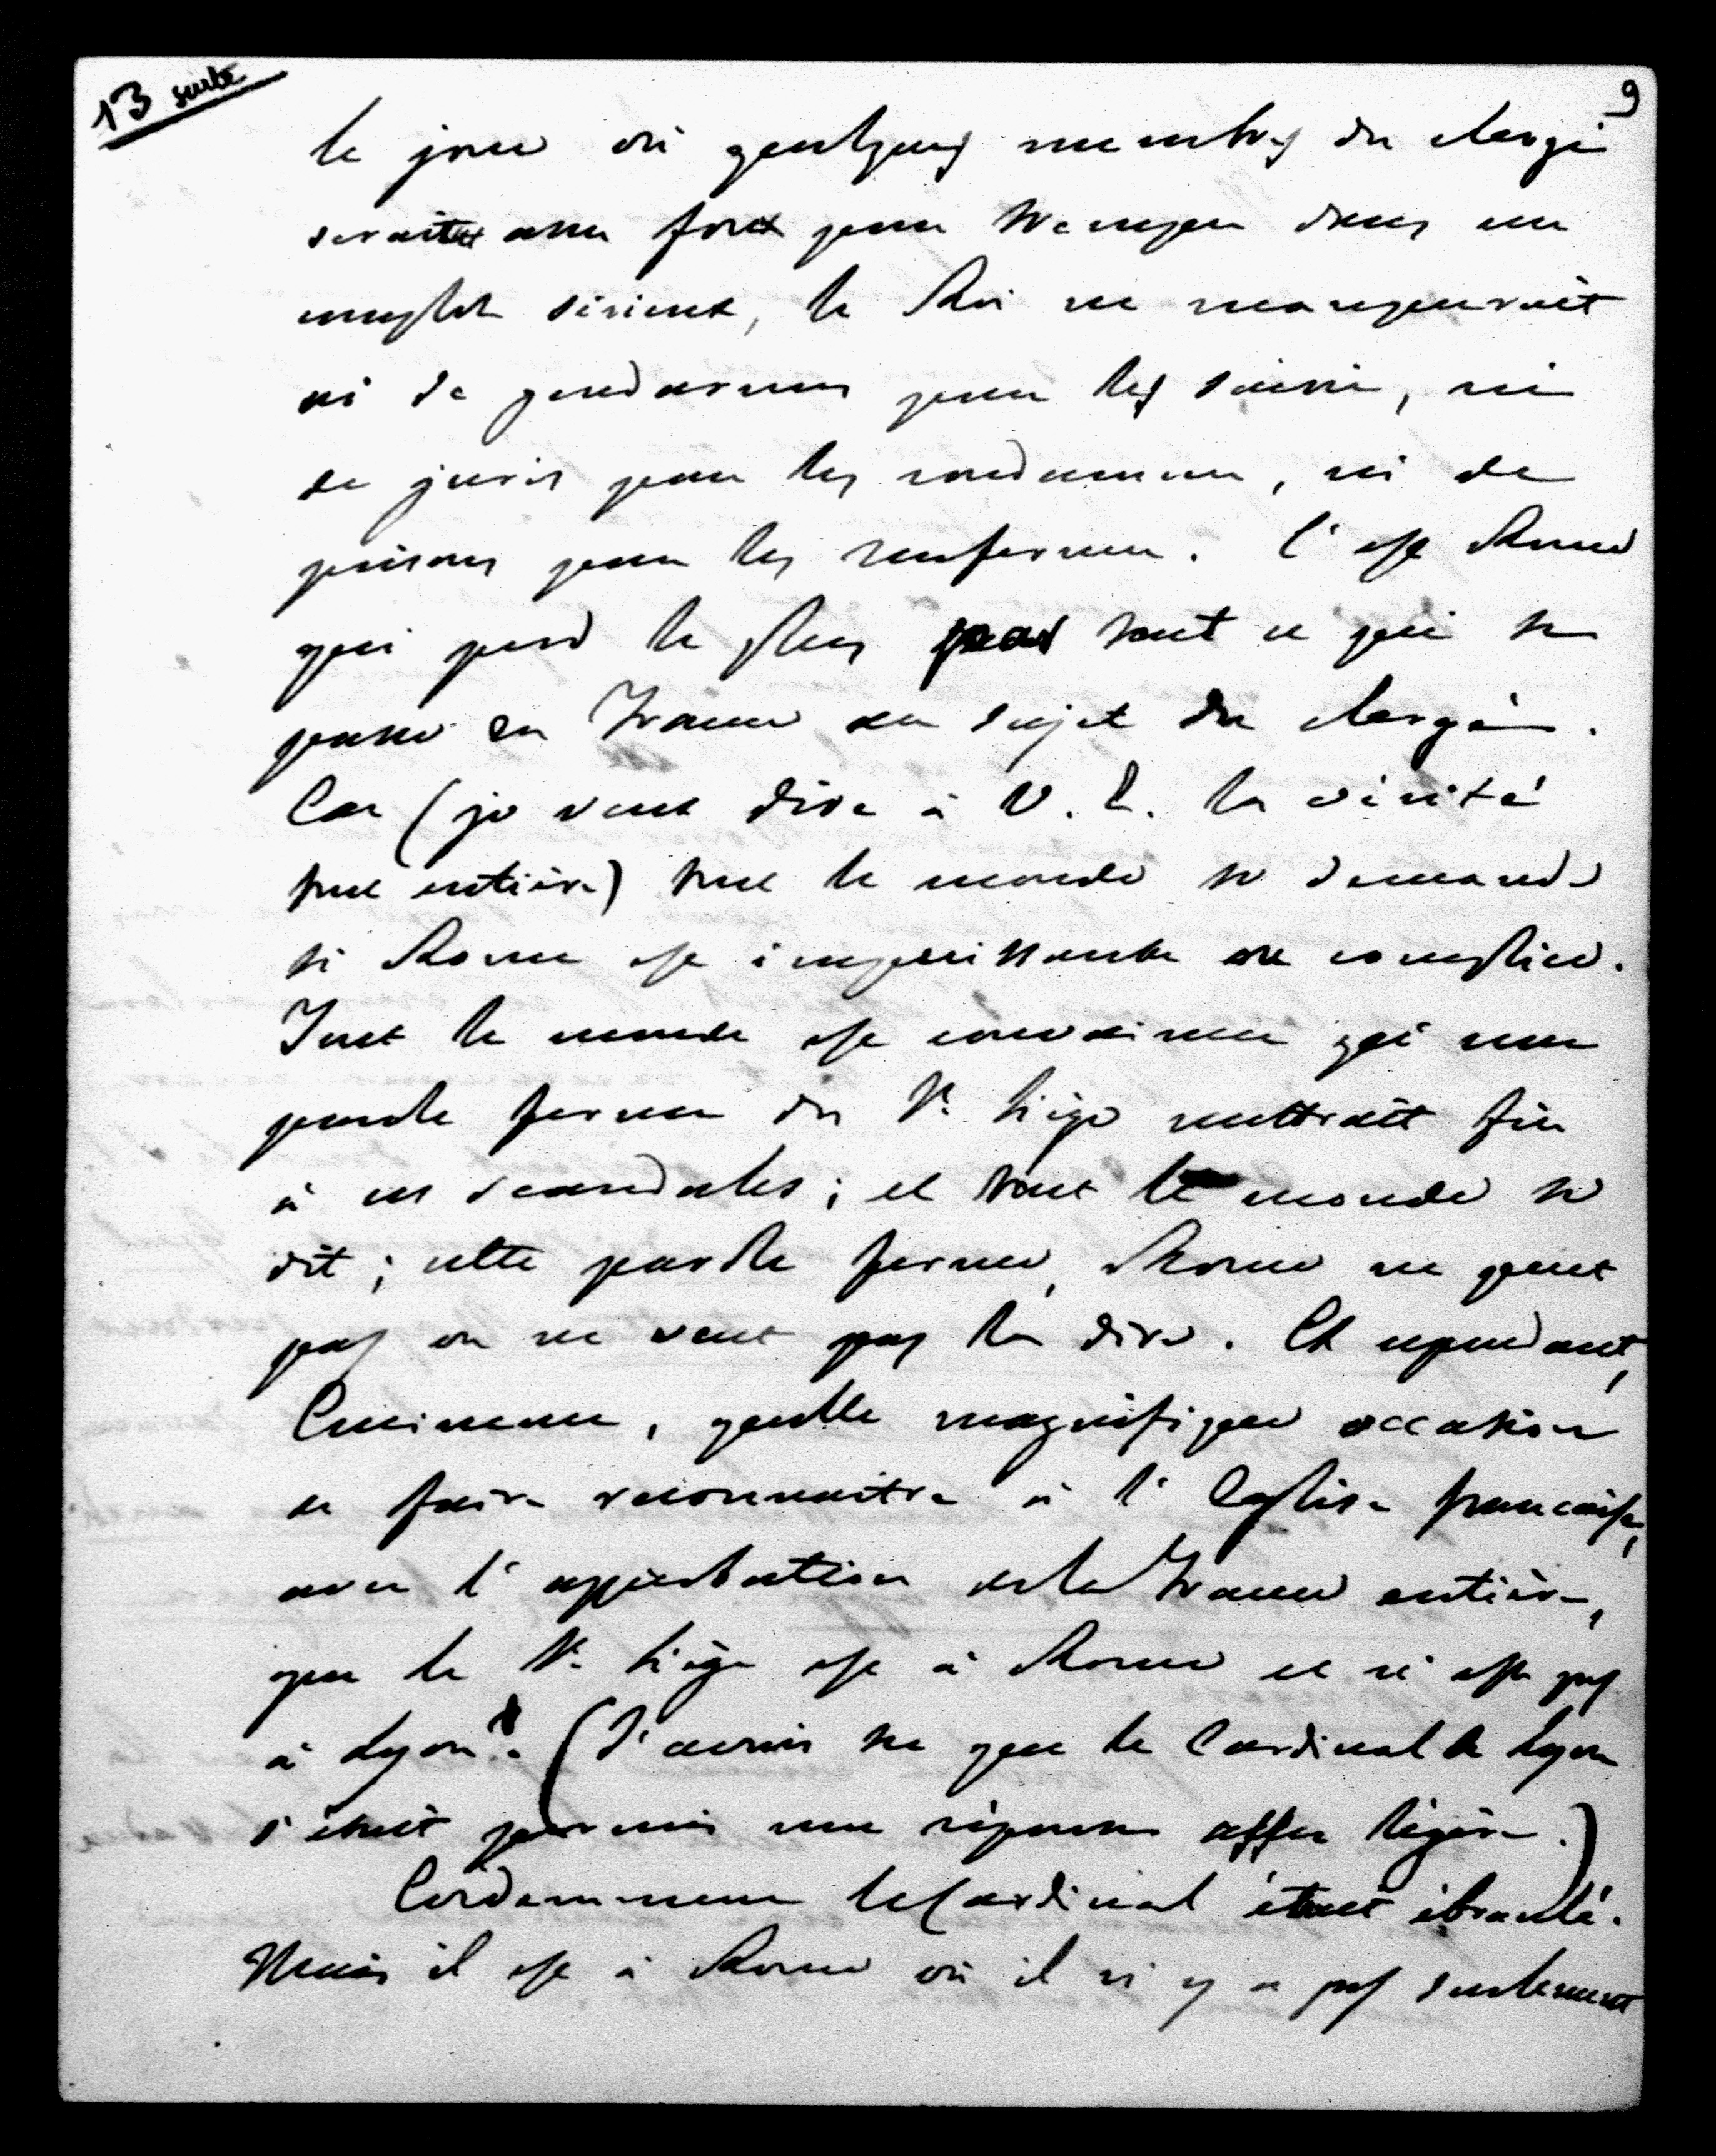 13 suite
9
le jour où quelques membres du clergé
serait assez fort pour tremper dans un
complot sérieux, le Roi ne manquerait
ni de gendarmes pour les saisir, ni
de jurés pour les condamner, ni de
prisons pour les renfermer. C'est Rome
qui perd le plus pour tout ce qui se
passe en France au sujet du clergé.
Car (je veux dire à V. E. la vérité
tout entière) tout le monde se demande
si Rome est impuissante ou complice.
Tout le monde est convaincu qu'une
parole ferme du St. Siège mettrait fin
à ces scandales; et tout le monde se
dit; cette parole ferme, Rome ne peut
pas ou ne veut pas la dire. Et cependant,
Eminence, quelle magnifique occasion
de faire reconnaitre à l'Eglise française,
avec l'approbation de la France entière,
que le St. Siège est à Rome et n'est pas
à Lyon? (J'avais su que le Cardinal de Lyon
s'était permis une réponse assez légère.)
Evidemment le Cardinal était ébranlé.
Mais il est à Rome où il n'y a pas seulement